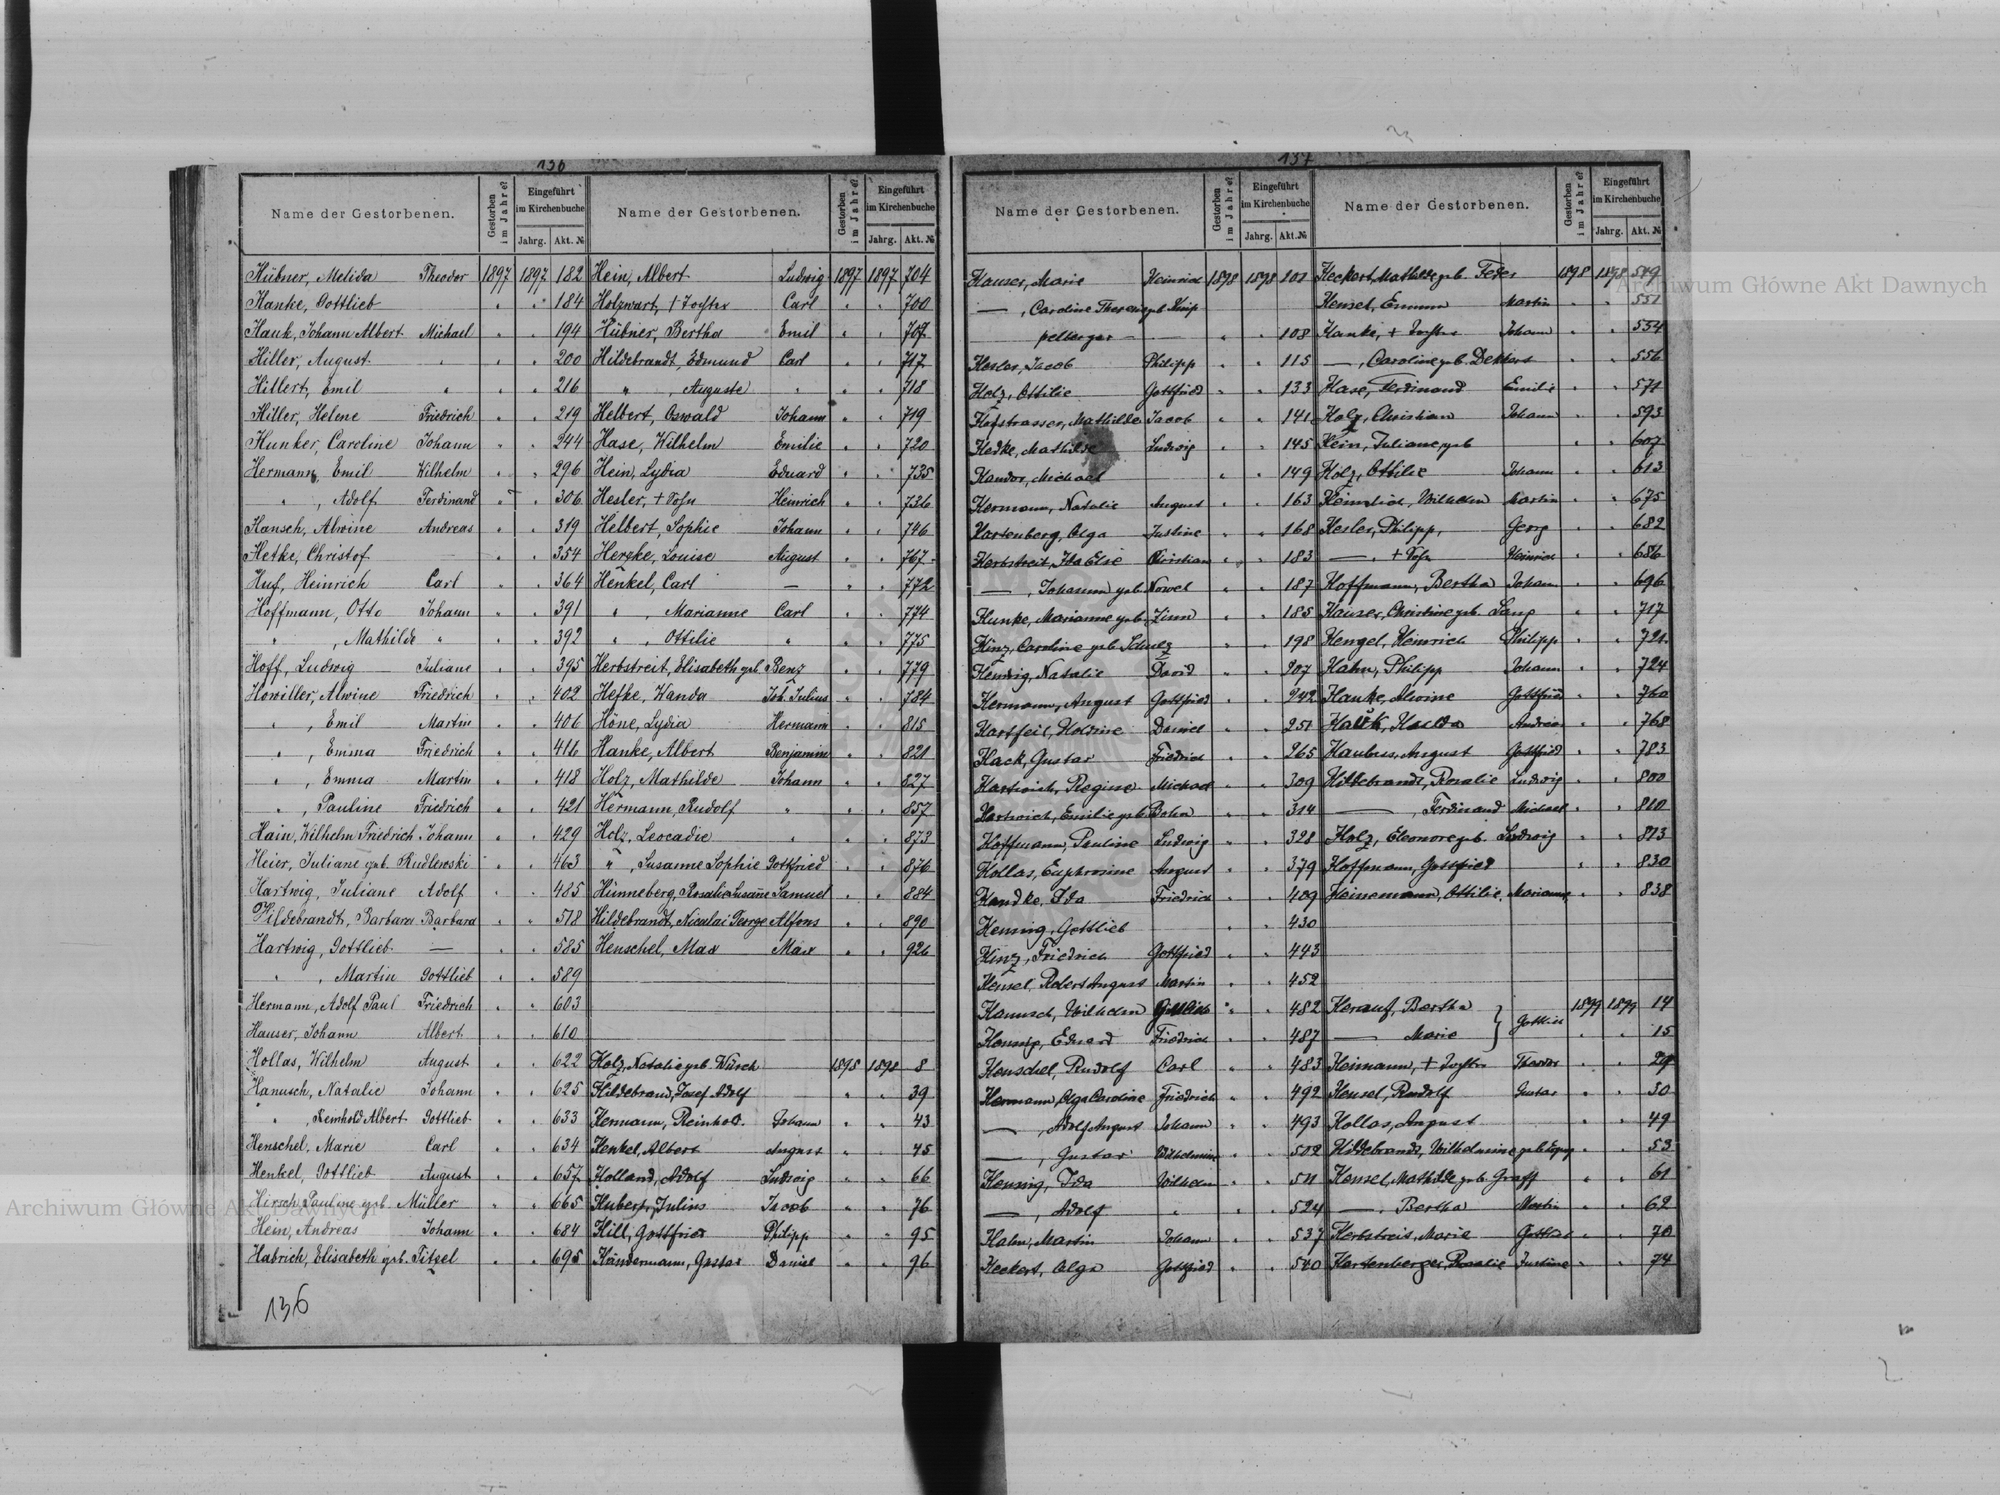 136
Name der Gestorbenen. Gestorben im Jahre? Eingeführt im Kirchenbuche Jahrg. Akt. №
Hübner, Melida Theodor 1897 1897 182
Hanke, Gottlieb " " 184
Hauk, Johann Albert Michael " " 194
Hiller, August " " " 200
Hillert, Emil " " " 216
Hiller, Helene Friedrich " " 219
Hunker, Caroline Johann " " 244
Hermann, Emil Wilhelm " " 296
" , Adolf Ferdinand " " 306
Hansch, Alwine Andreas " " 319
Hetke, Christof — " " 354
Huf, Heinrich Carl " " 364
Hoffmann, Otto Johann " " 391
" , Mathilde " " " 392
Hoff, Ludwig Juliane " " 395
Howiller, Alwine Friedrich " " 402
" , Emil Martin " " 406
" , Emma Friedrich " " 416
" , Emma Martin " " 418
" , Pauline Friedrich " " 421
Hain, Wilhelm Friedrich Johann " " 429
Heier, Juliane geb. Rudlewski " " 463
Hartwig, Juliane Adolf " " 485
Hildebrandt, Barbara Barbara " " 518
Hartwig, Gottlieb — " " 585
" , Martin Gottlieb " " 589
Hermann, Adolf Paul Friedrich " " 603
Hauser, Johann Albert " " 610
Hollas, Wilhelm August " " 622
Hanusch, Natalie Johann " " 625
" , Reinhold Albert Gottlieb " " 633
Henschel, Marie Carl " " 634
Henkel, Gottlieb August " " 657
Hirsch, Pauline geb. Müller " " 665
Hein, Andreas Johann " " 684
Habrich, Elisabeth geb. Titzel " " 695
136
Name der Gestorbenen. Gestorben im Jahre? Eingeführt im Kirchenbuche Jahrg. Akt. №
Hein, Albert Ludwig 1897 1897 704
Holzwart, + Tochter Carl " " 700
Hübner, Bertha Emil " " 707
Hildebrandt, Edmund Carl " " 717
" , Auguste " " " 718
Helbert, Oswald Johann " " 719
Hase, Wilhelm Emilie " " 720
Hein, Lydia Eduard " " 735
Hesler, + Sohn Heinrich " " 736
Helbert, Sophie Johann " " 746
Herzke, Louise August " " 767
Henkel, Carl — " " 772
" , Marianne Carl " " 774
" , Ottilie " " " 775
Herbstreit, Elisabeth geb. Benz " " 779
Hefke, Wanda Joh. Julius " " 784
Höne, Lydia Hermann " " 815
Hanke, Albert Benjamin " " 821
Holz, Mathilde Johann " " 827
Hermann, Rudolf " " " 857
Holz, Leocadie " " " 873
" , Susanne Sophie Gottfried " " 876
Hünneberg, Rosalie Susanne Samuel " " 884
Hildebrandt, Nicolai George Alfons " " 890
Henschel, Max Max " " 926
Holz, Natalie geb. Würch 1898 1898 8
Hildebrand, Josef Adolf — " " 39
Hermann, Reinhold Johann " " 43
Henkel, Albert August " " 45
Holland, Adolf Ludwig " " 66
Hubert, Julius Jacob " " 76
Hill, Gottfried Philipp " " 95
Hündermann, Gustav Daniel " " 96
137
Name der Gestorbenen. Gestorben im Jahre? Eingeführt im Kirchenbuche Jahrg. Akt. №
Hauser, Marie Heinrich 1898 1898 101
— , Caroline Therese geb. Knip
pelberger — " " 108
Hesler, Jacob Philipp " " 115
Holz, Ottilie Gottfried " " 133
Hofstrasser, Mathilde Jacob " " 141
Hedke, Mathilde Ludwig " " 145
Handor, Michael " " 149
Hermann, Natalie August " " 163
Hartenberg, Olga Justine " " 168
Herbstreit, Ida Else Christian " " 183
— , Johanna geb. Nowel " " 187
Hunke, Marianne geb. Zinn " " 185
Hinz, Caroline geb. Schulz " " 198
Hennig, Natalie David " " 207
Hermann, August Gottfried " " 242
Hartfeil, Holdine Daniel " " 251
Hack, Gustav Friedrich " " 265
Hartwich, Regine Michael " " 309
Hartwich, Emilie geb. Bohn " " 314
Hoffmann, Pauline Ludwig " " 328
Hollas, Euphrosine August " " 379
Handke, Ida Friedrich " " 409
Hennig, Gottlieb " " 430
Hinz, Friedrich Gottfried " " 443
Hensel, Robert August Martin " " 452
Hanusch, Wilhelm Gottlieb " " 482
Hennig, Eduard Friedrich " " 487
Henschel, Rudolf Carl " " 483
Hermann, Olga Caroline Friedrich " " 492
— , Adolf August Johann " " 493
— , Gustav Wilhelmine " " 502
Hennig, Ida Wilhelm " " 511
— , Adolf " " " 524
Hahn, Martin Johann " " 537
Heckert, Olga Gottfried " " 540
Name der Gestorbenen. Gestorben im Jahre? Eingeführt im Kirchenbuche Jahrg. Akt. №
Heckert, Mathilde geb. Feder 1898 1898 549
Hensel, Emma Martin " " 551
Hanke, + Tochter Johann " " 554
— , Caroline geb. Dekkert " " 556
Hase, Ferdinand Emilie " " 571
Holz, Christian Johann " " 593
Hein, Juliane geb. " " 607
Holz, Ottilie Johann " " 613
Heimlich, Wilhelm Martin " " 675
Hesler, Philipp, Georg " " 682
— , + Sohn Heinrich " " 686
Hoffmann, Bertha Johann " " 696
Hauser, Christine geb. Lang " " 717
Hengel, Heinrich Philipp " " 721
Hahn, Philipp Johann " " 724
Hanke, Alwine Gottfried " " 760
Hauk, Hulda Andreas " " 768
Haubner, August Gottfried " " 783
Hildebrandt, Rosalie Ludwig " " 800
— , Ferdinand Michael " " 810
Holz, Eleonore geb. Ludwig " " 813
Hoffmann, Gottfried " " 830
Heinemann, Ottilie Marianne " " 838
Herauf, Bertha } Gottlieb 1899 1899 14
— Marie " " 15
Heimann, + Tochter Theodor " " 29
Hensel, Rudolf Gustav " " 30
Hollas, August " " 49
Hildebrandt, Wilhelmine geb. " " 53
Hensel, Mathilde geb. Graff " " 61
— , Bertha Martin " " 62
Herbstreit, Marie Gottlieb " " 70
Hartenberger, Rosalie Justine " " 74
Archiwum Główne Akt Dawnych
Archiwum Główne Akt Dawnych